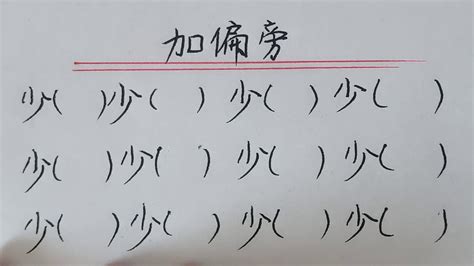 加偏旁
少( )少( ) 少( ) 少( )
少( )少( ) 少( ) 少( )
少( )少( ) 少( ) 少( )